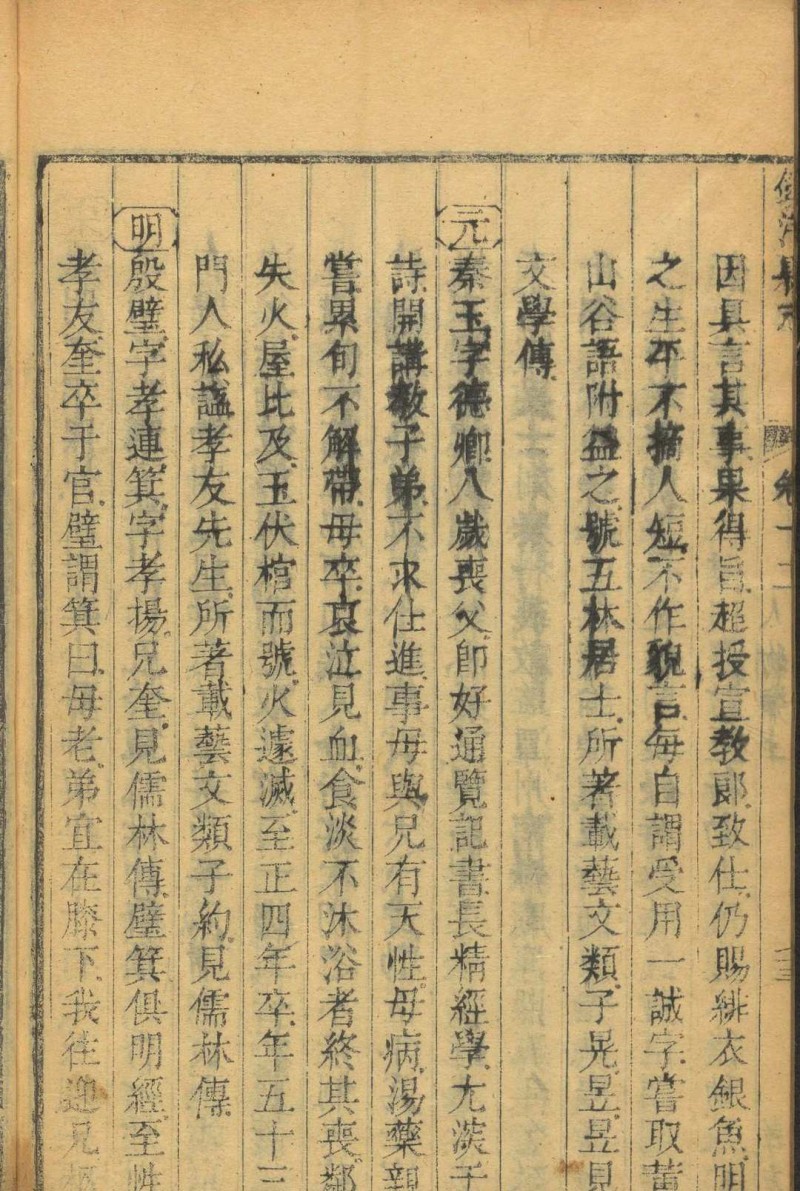 因具言其事果得旨超授宣教郎致仕仍賜緋衣銀魚明
之生平不摘人短不作貌言每自謂受用一誠字嘗取黃
山谷語附益之號五林居士所著載藝文類子晃昱昱見
文學傳
元秦玉字德卿八歲喪父卽好通覽記書長精經學尤深于
詩開講教子弟不求仕進事母與兄有天性母病湯藥親
嘗累旬不解帶母卒哀泣見血食淡不沐浴者終其喪鄰
失火屋比及玉伏棺而號火遽滅至正四年卒年五十三
門人私諡孝友先生所著載藝文類子約見儒林傳
明殷璧字孝連箕字孝揚兄奎見儒林傳璧箕俱明經至性
孝友奎卒于官璧謂箕曰母老弟宜在膝下我往迎兄